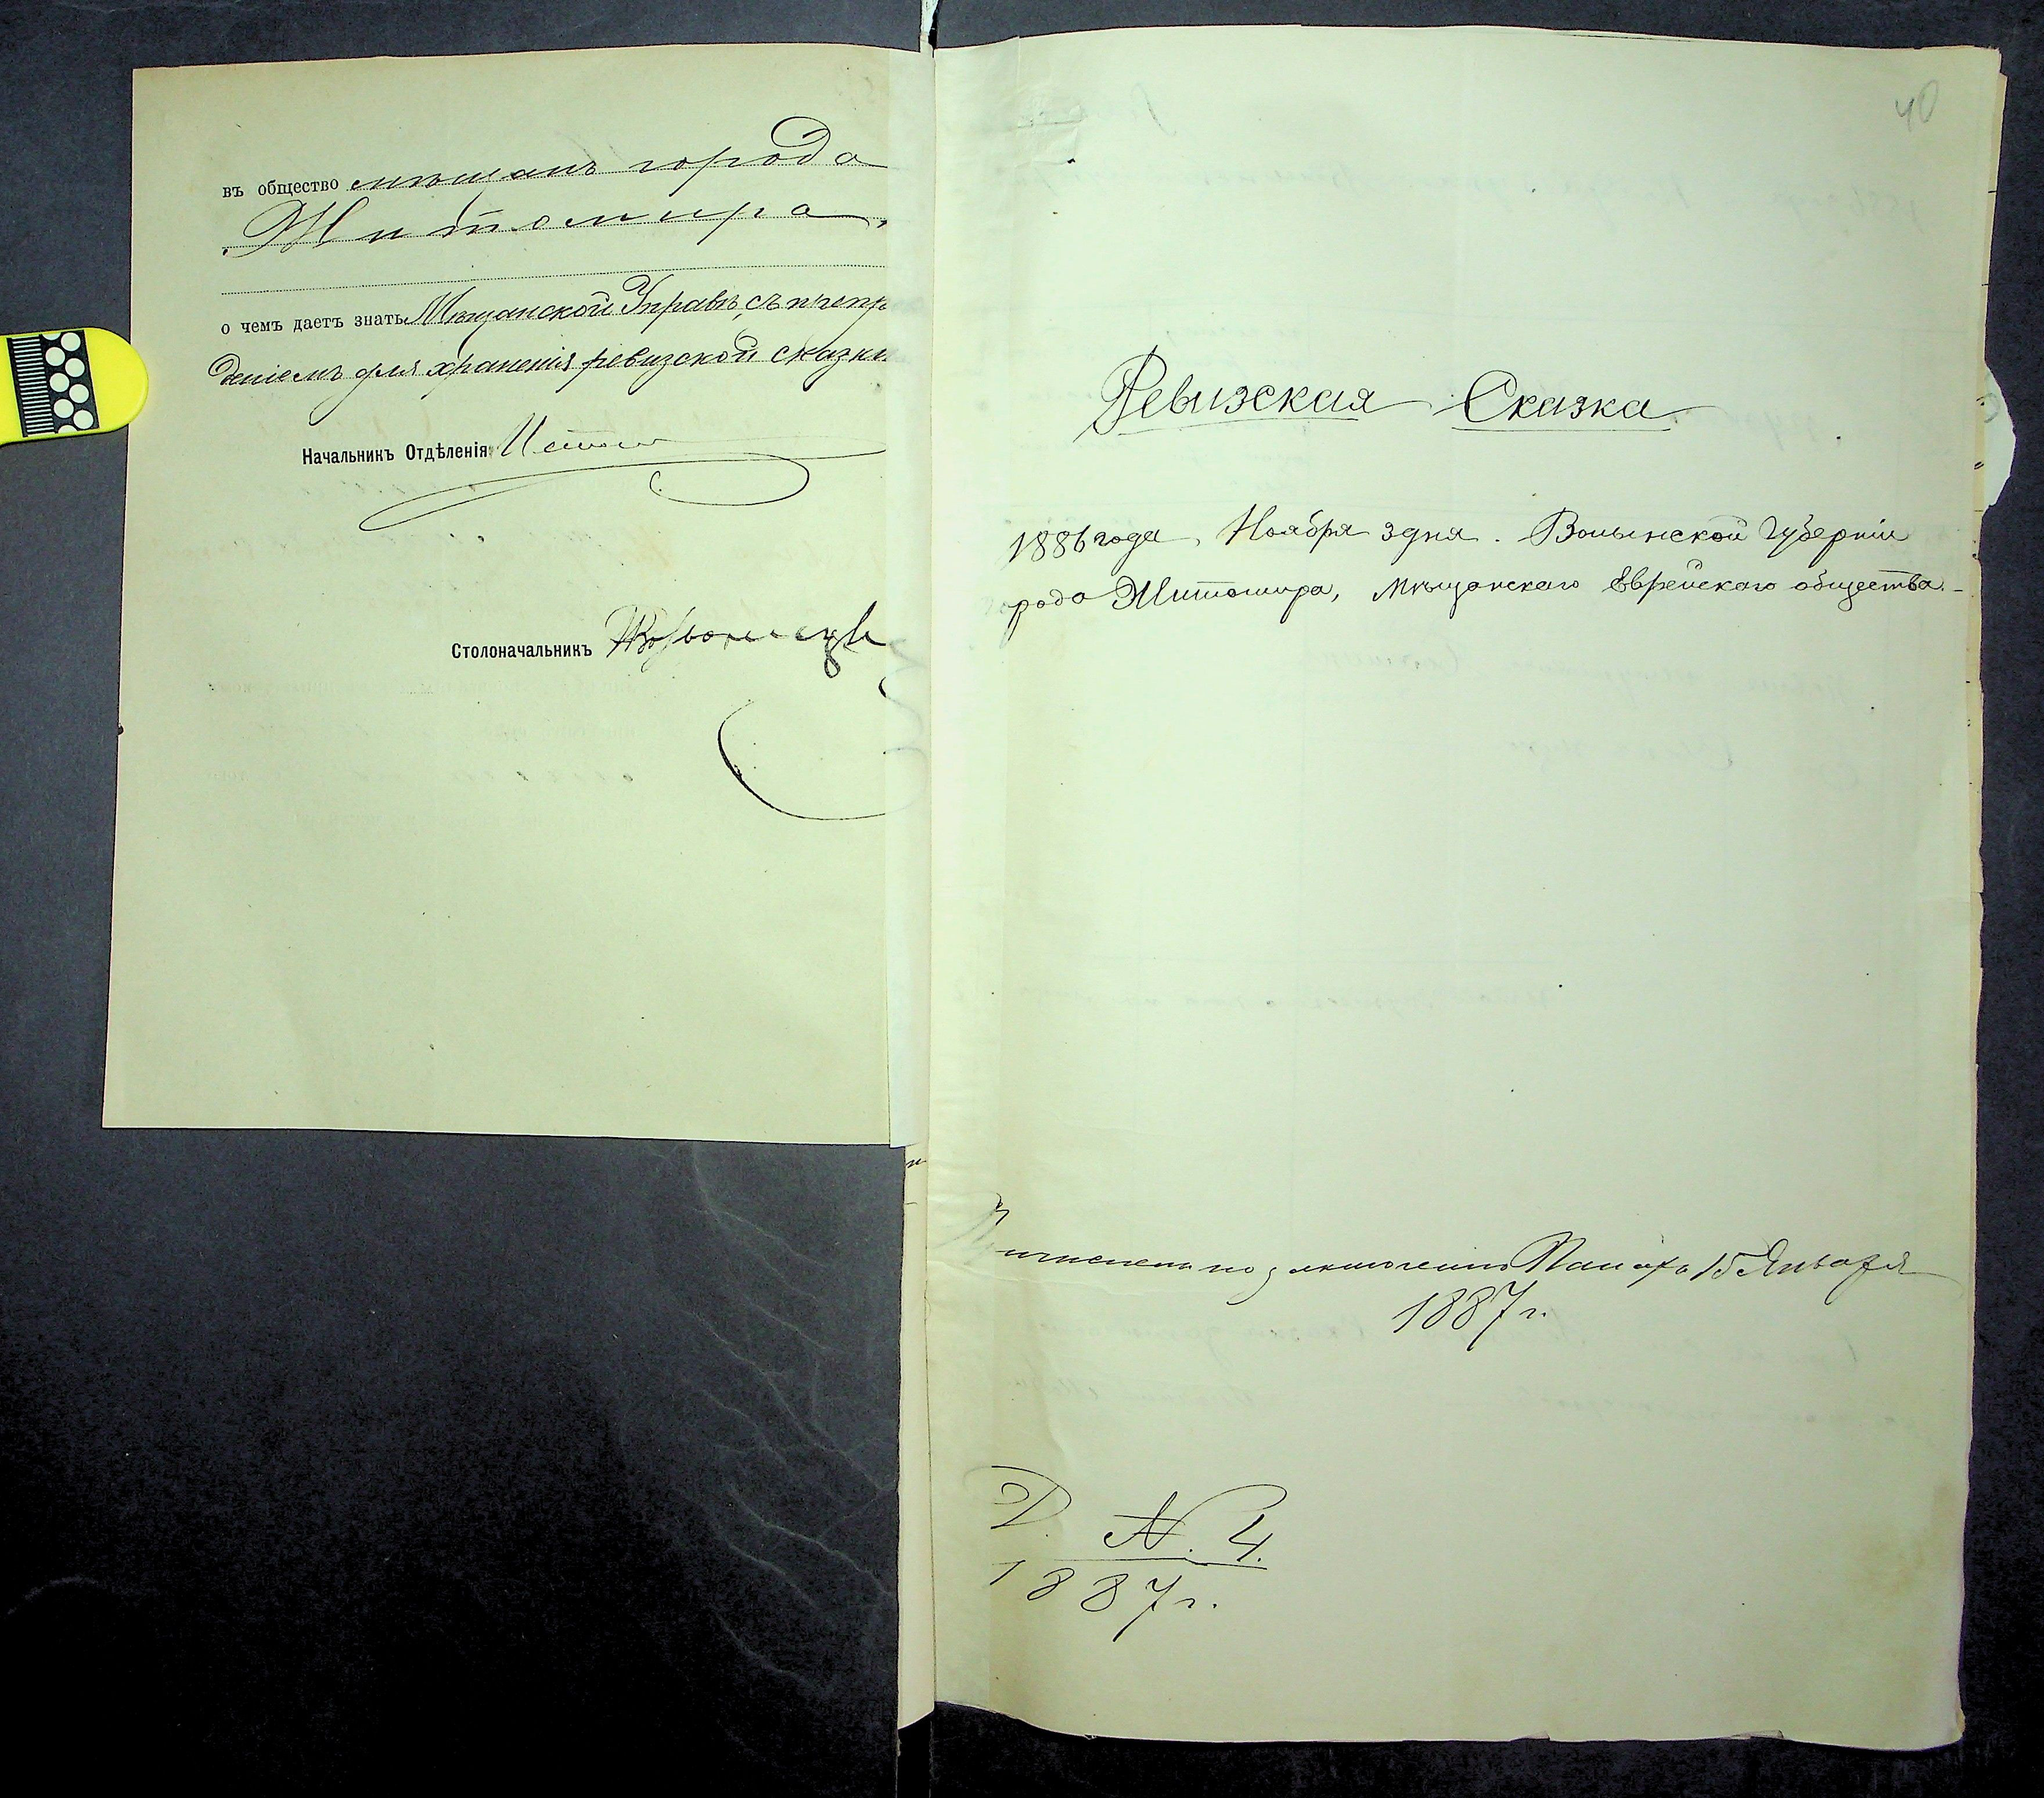 въ общество мѣщанъ города
Житомира,
о чемъ даетъ знать Мѣщанской Управѣ, съ препр
деніемъ для храненія ревизской сказки
Начальникъ Отдѣленія
Столоначальникъ
40
Ревизская Сказка
1886 года Ноября 3 дня. Волынской Губерніи
рода Житомира, Мѣщанскаго Еврейскаго общества.
15 Января
1887 г.
Д. N. 4.
1887 г.